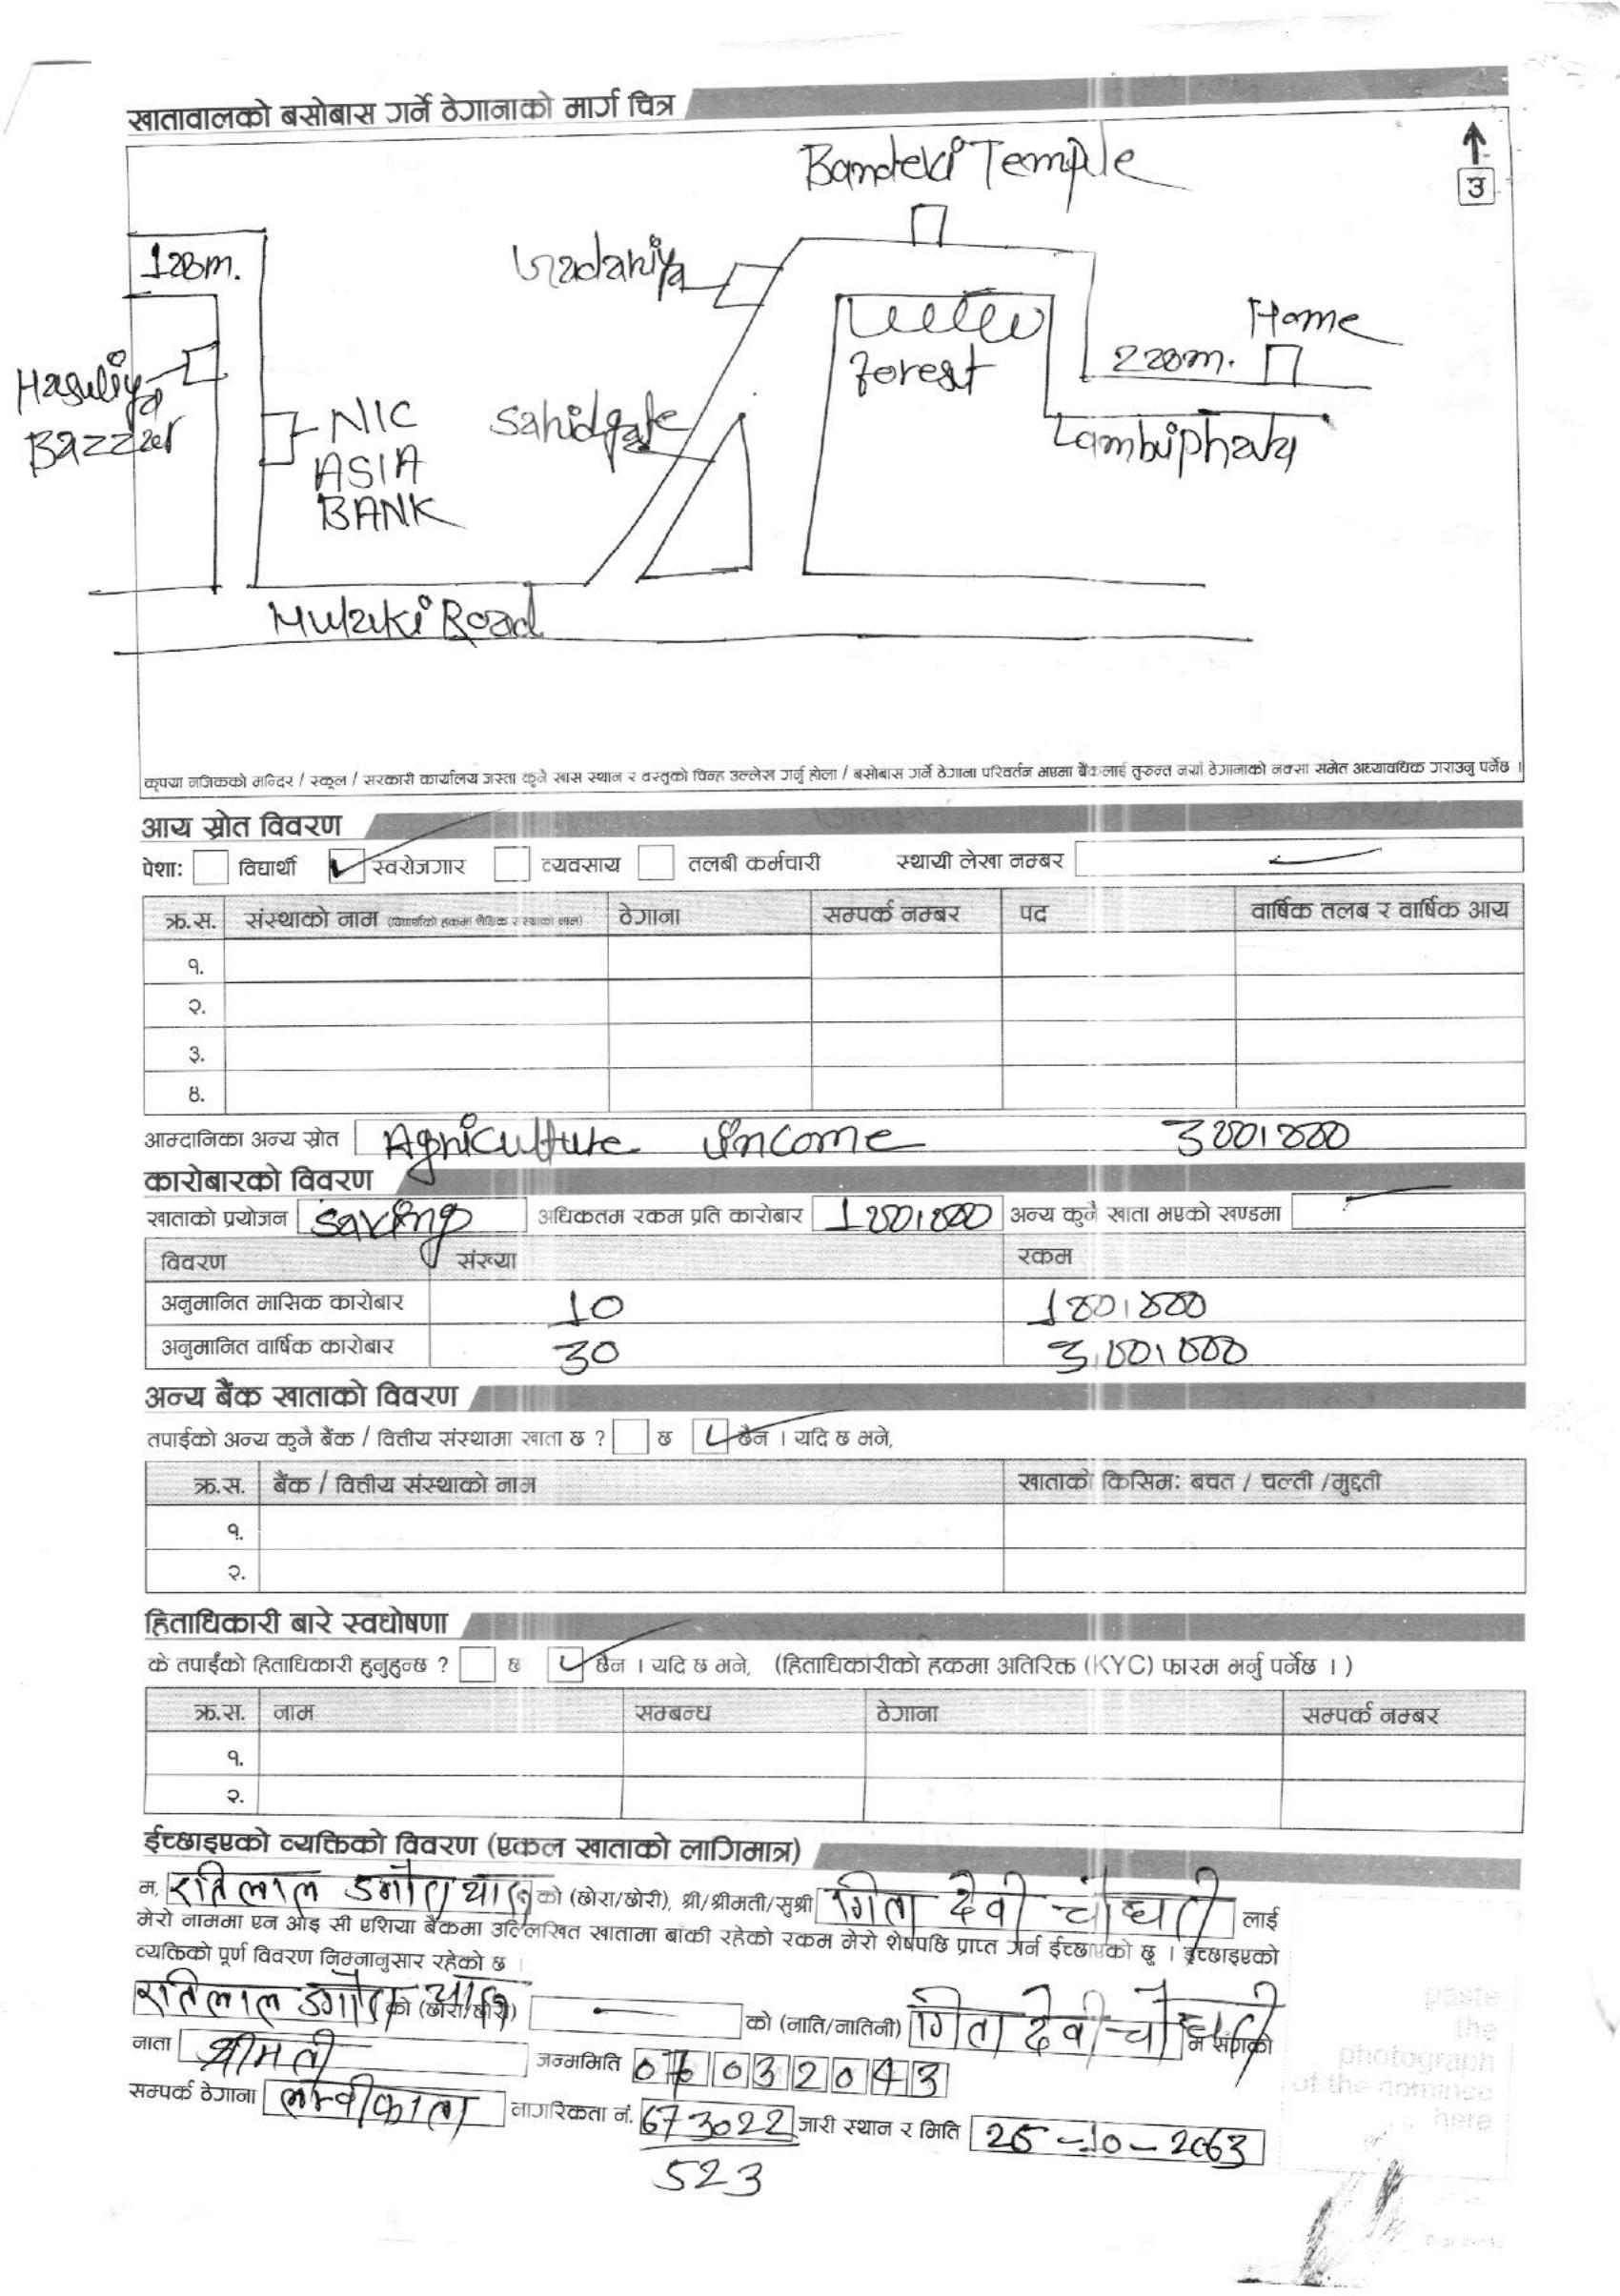 खातावालको बसोबास गर्ने ठेगानाको मार्ग चित्र
उ
Temple
Home
Hasuliya
Bazzar
forest
220m.
NIC
ASIA
BANK
Sahidgate
Hulaki Road
कृपया नजिकको मन्दिर / स्कूल / सरकारी कार्यालय जस्ता कुनै खास स्थान र वस्तुको चिन्ह उल्लेख गर्नु होला / बसोबास गर्ने ठेगाना परिवर्तन भएमा बैंकलाई तुरुन्त नयाँ ठेगानाको नक्सा समेत अध्यावधिक गराउनु पर्नेछ ।
आय स्रोत विवरण
पेशा: विद्यार्थी स्वरोजगार व्यवसाय तलबी कर्मचारी स्थायी लेखा नम्बर
क्र.स. संस्थाको नाम ठेगाना सम्पर्क नम्बर पद वार्षिक तलब र वार्षिक आय
१.
२.
३.
४.
आम्दानिका अन्य स्रोत Agriculture Income
कारोबारको विवरण
खाताको प्रयोजन Saving अधिकतम रकम प्रति कारोबार अन्य कुनै खाता भएको खण्डमा
विवरण संख्या रकम
अनुमानित मासिक कारोबार 10
अनुमानित वार्षिक कारोबार 30
अन्य बैंक खाताको विवरण
तपाईको अन्य कुनै बैंक / वित्तीय संस्थामा खाता छ ? छ छैन । यदि छ भने,
क्र.स. बैंक / वित्तीय संस्थाको नाम खाताको किसिम: बचत / चल्ती /मुद्दती
१.
२.
हिताधिकारी बारे स्वघोषणा
के तपाईंको हिताधिकारी हुनुहुन्छ ? छ छैन । यदि छ भने, (हिताधिकारीको हकमा अतिरिक्त (KYC) फारम भर्नु पर्नेछ । )
क्र.स. नाम सम्बन्ध ठेगाना सम्पर्क नम्बर
१.
२.
ईच्छाइएको व्यक्तिको विवरण (एकल खाताको लागिमात्र)
म, को (छोरा/छोरी), श्री/श्रीमती/सुश्री गिता देवी चौधरी लाई
मेरो नाममा एन आइ सी एशिया बैंकमा उल्लिखित खातामा बाँकी रहेको रकम मेरो शेषपछि प्राप्त गर्न ईच्छाएको छु । ईच्छाइएको
व्यक्तिको पूर्ण विवरण निम्नानुसार रहेको छ ।
को (छोरा/छोरी) को (नाति/नातिनी) गिता देवी चौधरी म संगको
नाता श्रीमती जन्ममिति
सम्पर्क ठेगाना नागरिकता नं. 673022 जारी स्थान र मिति
523
paste
the
photograph
of the nominee
here